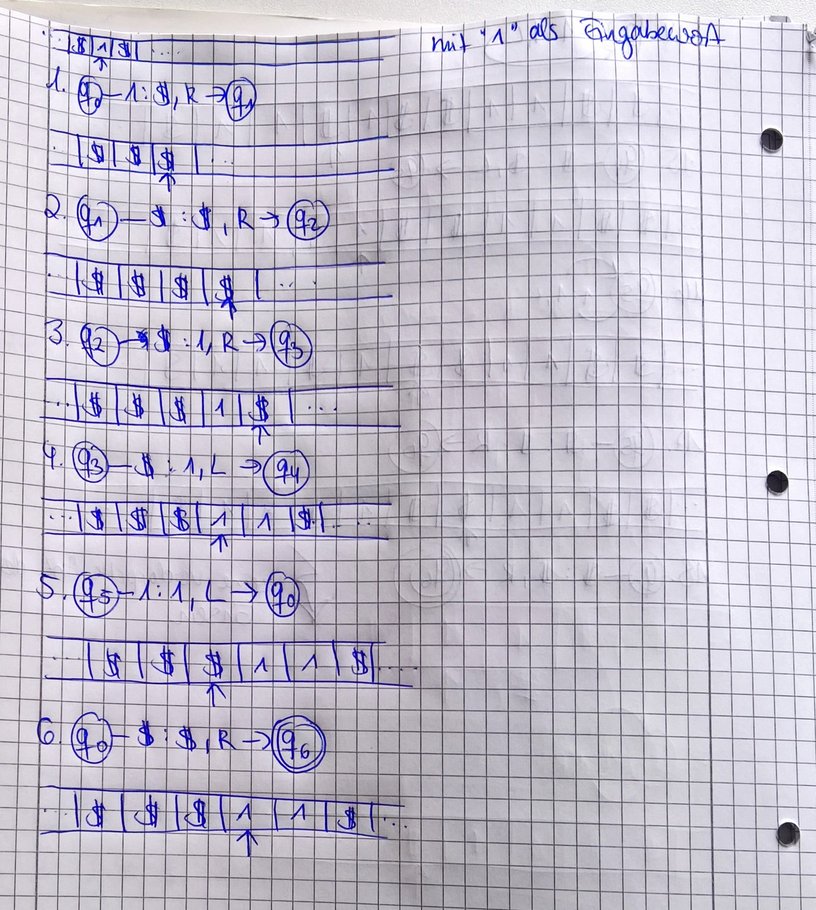 mit "1" als Eingabewort
... | $ | 1 | $ | ....
↑
1. q0 — 1 : $, R → q1
... | $ | $ | $ | ...
↑
2. q1 — $ : $, R → q2
... | $ | $ | $ | $ | ...
↑
3. q2 — $ : 1, R → q3
... | $ | $ | $ | 1 | $ | ...
↑
4. q3 — $ : 1, L → q4
... | $ | $ | $ | 1 | 1 | $ | ...
↑
5. q5 — 1 : 1, L → q0
... | $ | $ | $ | 1 | 1 | $ | ....
↑
6. q0 — $ : $, R → q6
... | $ | $ | $ | 1 | 1 | $ | ...
↑